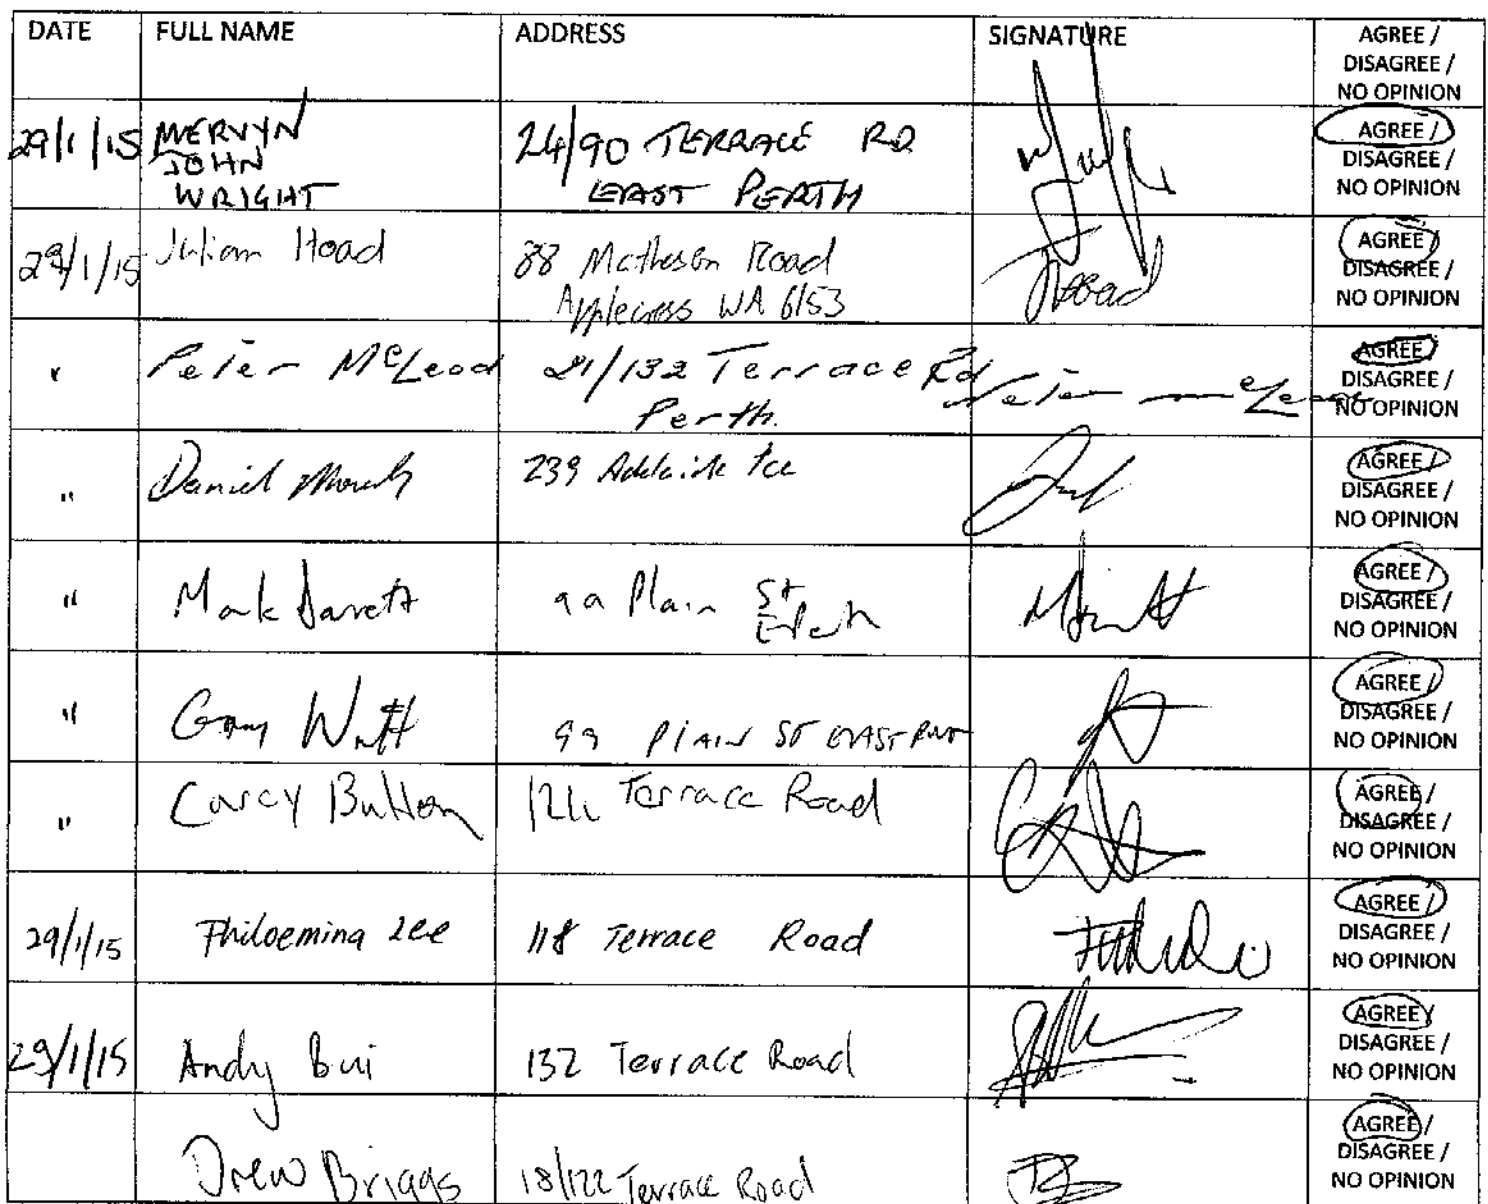 DATE FULL NAME ADDRESS SIGNATURE AGREE /
DISAGREE /
NO OPINION
29/1/15 MERVYN 24/90 TERRACE RD AGREE /
JOHN EAST PERTH DISAGREE /
WRIGHT NO OPINION
29/1/15 Julian Hoad 88 Matheson Road AGREE /
Applecross WA 6153 JHoad DISAGREE /
NO OPINION
" Peter McLeod 21/132 Terrace Rd Peter McLeod AGREE /
Perth. DISAGREE /
NO OPINION
" Daniel 239 Adelaide Tce AGREE /
DISAGREE /
NO OPINION
" Mark Jarrett 99 Plain St AGREE /
E Perth DISAGREE /
NO OPINION
" Gary Watt 99 PLAIN ST EAST AGREE /
DISAGREE /
NO OPINION
" Carey Button Terrace Road AGREE /
DISAGREE /
NO OPINION
29/1/15 Philoemina Lee 118 Terrace Road AGREE /
DISAGREE /
NO OPINION
29/1/15 Andy Bui 132 Terrace Road AGREE /
DISAGREE /
NO OPINION
Drew Briggs 18/122 Terrace Road AGREE /
DISAGREE /
NO OPINION